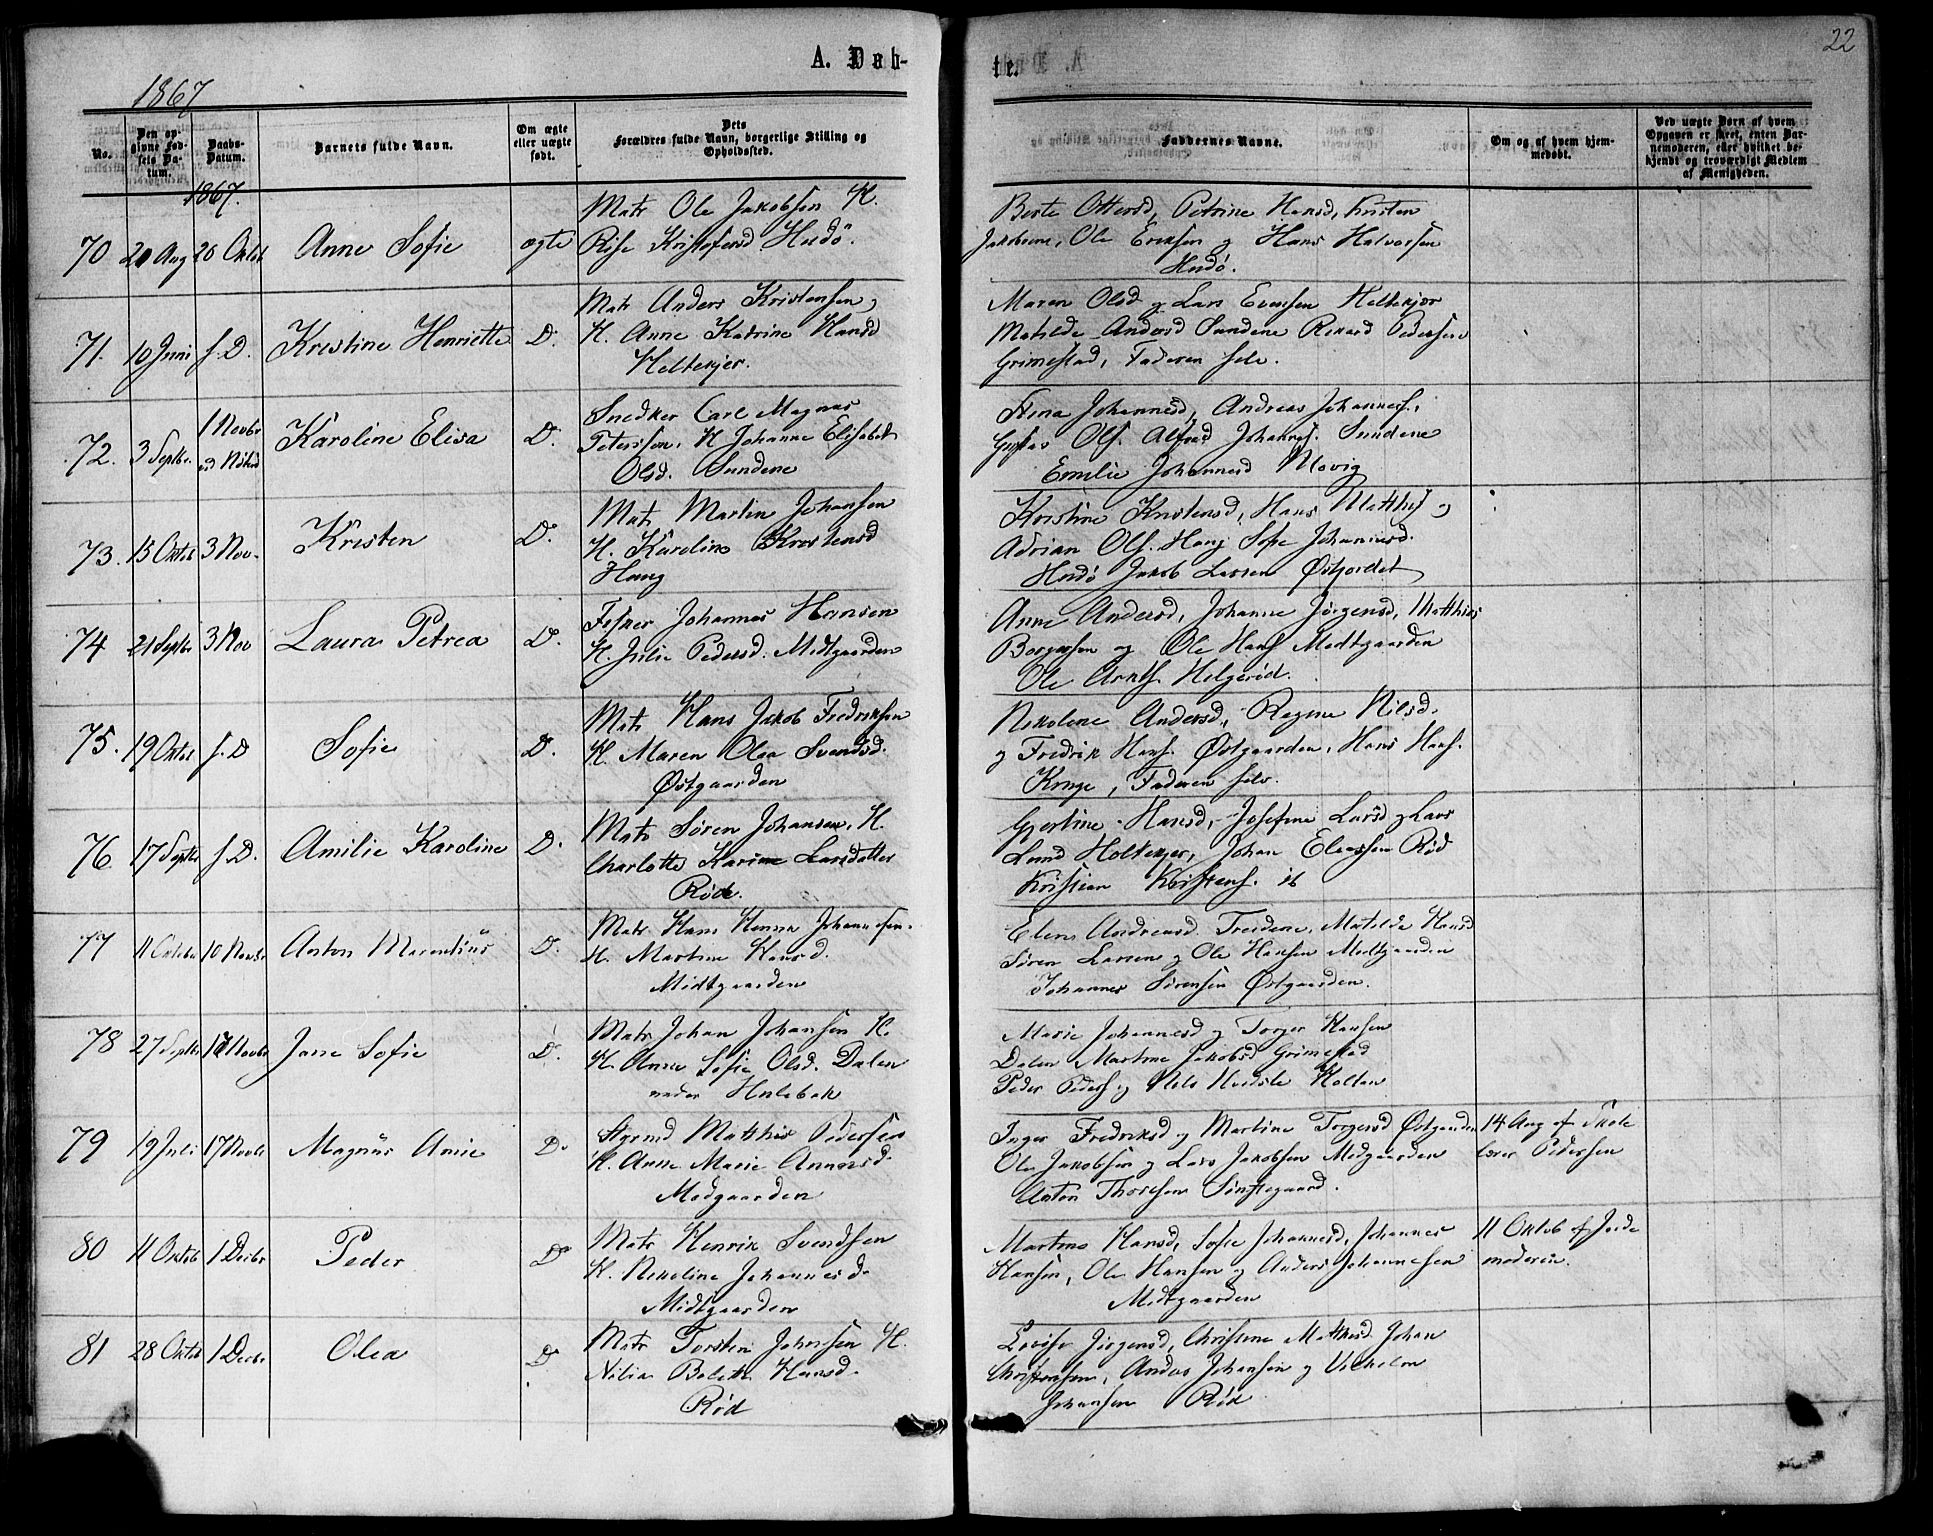 A. Døb-
te.
22
1867
No.
Den op-
givne Fød-
sels Da-
tum.
Daabs-
Datum.
Barnets fulde Navn.
Om ægte
eller uægte
født.
Dets
Forældres fulde Navn, borgerlige Stilling og
Opholdssted.
Faddernes Navne.
Om og af hvem hjem-
medøbt.
Ved uægte Børn af hvem
Opgaven er skeet, enten Bar-
nemoderen, eller hvilket be-
kjendt og troværdigt Medlem
af Menigheden.
1867.
70 20 Aug 20 Oktob Anne Sofie ægte
Matr Ole Jakobsen H.
Rise Kristofersd Hudø.
Berte Ottersd, Petrine Hansd, Kristen
Jakobsen, Ole Eriksen og Hans Halvorsen
Hudø.
71. 10 Juni s. D. Kristine Henriette D.
Matr Anders Kristensen,
H. Anne Katrine Hansd
Holtekjær.
Maren Olsd og Lars Evensen Holtekjær
Matilde Andersd Sundene Rikard Pedersen
Grimestad, Faderen selv.
72. 3 Septbr. 1 Novbr Karoline Elisa D.
Snedker Carl Magnus
Petersson. H Johanne Elisabet
Olsd. Sundene
Stina Johannesd, Andreas Johanness.
Gustav Ols. Alfred Johannes. Sundene
Emilie Johannesd Movig
73. 15 Oktob 3 Nov. Kristen D.
Matr Martin Johansen
H. Karoline Kristensd
Haug
Kristine Kristensd, Hans Matthis og
Adrian Ols. Haug Sofie Johannesd.
Hudø Jakob Larsen Østjordet
74 21 Septbr 3 Nov Laura Petrea D.
Fisker Johannes Hansen
H. Julie Pedersd. Midtgaarden
Anne Andersd, Johanne Jørgensd, Matthias
Borgersen og Ole Hans Midtgaarden
Ole Arnts. Helgerød.
75. 19 Oktob s. D Sofie D.
Matr Hans Jakob Fredriksen
H. Maren Olea Svendsd.
Østgaarden
Nikoline Andersd, Regine Nilsd.
og Fredrik Hans. Østgaarden, Hans Hans.
Kruge, Faderen selv.
76 17 Septbr s. D. Amilie Karoline D.
Matr Søren Johansen, H.
Charlotte Karine Larsdatter
Røde.
Gjertine Hansd, Josefine Larsd og Lars
Lund Holtekjær, Johan Eliassen Rød
Kristian Kristens. ib
77 11 Oktober 10 Novbr Anton Marentius D.
Matr Hans Henrik Johannesen.
H. Martine Hansd.
Midtgaarden
Elen Andreasd. Treidene, Matilde Hansd
Søren Larsen og Ole Hansen Midtgaarden
Johannes Sørensen Østgaarden.
78 27 Septbr 17 Novbr Jane Sofie D.
Matr Johan Johansen H.
H. Anne Sofie Olsd. Dalen
under Hulebak
Marie Johannesd og Torger Hansen
Dalen Martine Jakobsd Grimestad
Peder Peders og Nils Holten
79 19 Juli 17 Novbr Magnus Amie D.
Styrmd Matthis Pedersen
H. Anne Marie Ammonsd.
Midgaarden
Inger Fredriksd og Martine Torgersd Østgaarden
Ole Jakobsen og Lars Jakobsen Midgaarden
Anton Thoresen Sønstegaard.
14 Aug af Skole
lærer Pedersen
80 11 Oktob 1 Decbr Peder D
Matr Henrik Svendsen
H. Nikoline Johannesd.
Midtgaarden
Martine Hansd, Sofie Johannesd, Johannes
Hansen, Ole Hansen og Anders Johannesen
Midtgaarden
11 Oktob af Jorde
moderen.
81 28 Oktob 1 Decbr Olea D.
Matr Torsten Johnsen H.
Nilia Bolette Hansd.
Rød
Lovise Jørgensd, Christine Matthisd. Johan
Christensen, Andas Johansen og Vilhelm
Johansen Rød